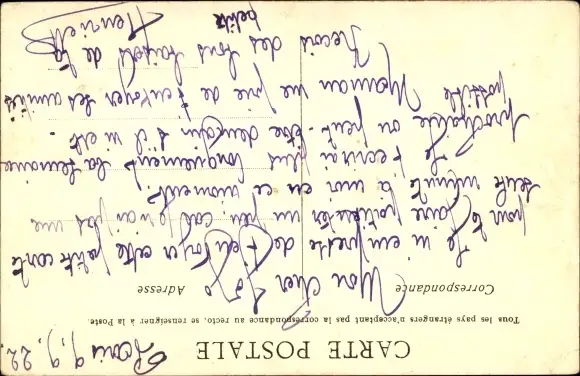 CARTE POSTALE
Paris 9, 9, 22.
Tous les pays étrangers n'acceptant pas la correspondance au recto, se renseigner à la Poste.
Correspondance Adresse
Mon cher Jojo
Je m'empresse de t'envoyer cette petite carte
pour te faire patienter un peu car je n'ai pas une
seule minute à moi en ce moment.
Je t'écrirai plus longuement la semaine
prochaine ou peut-être demain si m'est
possible. Maman me prie de t'envoyer ses amitiés
Reçois des bons baisers de ta
petite
Henriette